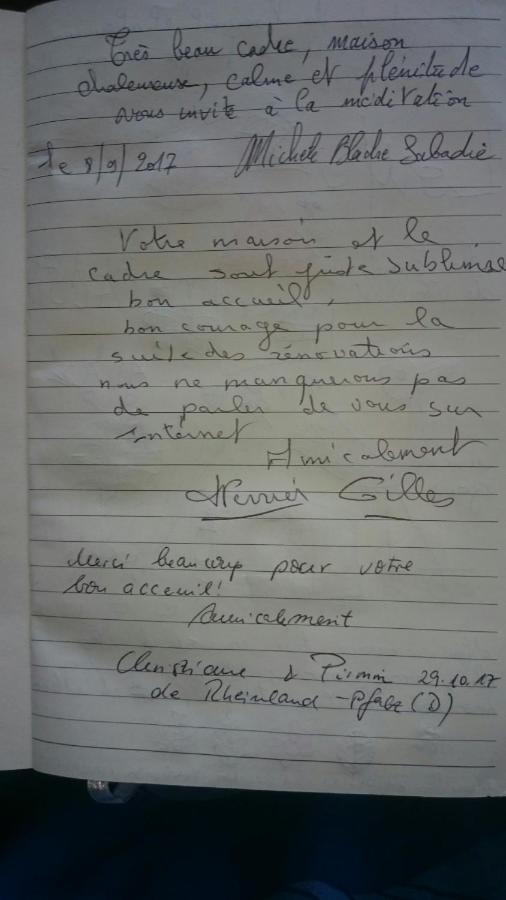 Très beau cadre, maison
chaleureuse, calme et plénitude
vous invite à la méditation
le 8/9/2017 Michele
Votre maison et le
cadre sont juste sublimse
bon accueil,
bon courage pour la
suite des rénovations
nous ne manquerons pas
de parler de vous sur
Internet
Amicalement
Gilles
Merci beaucoup pour votre
bon acceuil!
Amicalement
Christiane & Pirmin 29.10.17
de Rheinland-Pfalz (D)